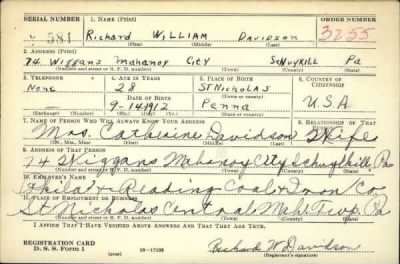 SERIAL NUMBER 1. NAME (Print) ORDER NUMBER
581 Richard WILLIAM Davidson 3255
(First) (Middle) (Last)
2. ADDRESS (Print)
74 Wiggans Mahanoy City SCHUYKILL Pa
(Number and street or R. F. D. number) (Town) (County) (State)
3. TELEPHONE 4. AGE IN YEARS 5. PLACE OF BIRTH 6. COUNTRY OF CITIZENSHIP
None 28 ST NICHOLAS
DATE OF BIRTH (Town or county)
9-14-1912 Penna U.S.A
(Exchange) (Number) (Mo.) (Day) (Yr.) (State or country)
7. NAME OF PERSON WHO WILL ALWAYS KNOW YOUR ADDRESS 8. RELATIONSHIP OF THAT PERSON
Mrs. Catherine Davidson Wife
(Mr., Mrs., Miss) (First) (Middle) (Last)
9. ADDRESS OF THAT PERSON
74 Wiggans Mahanoy City Schuylkill Pa
(Number and street or R. F. D. number) (Town) (County) (State)
10. EMPLOYER'S NAME
Phila & Reading Coal & Iron Co
11. PLACE OF EMPLOYMENT OR BUSINESS
St Nicholas Central Mah. Twp. Pa
(Number and street or R. F. D. number) (Town) (County) (State)
I AFFIRM THAT I HAVE VERIFIED ABOVE ANSWERS AND THAT THEY ARE TRUE.
REGISTRATION CARD
D. S. S. Form 1 (over) 16-17105 Richard W Davidson
(Registrant's signature)